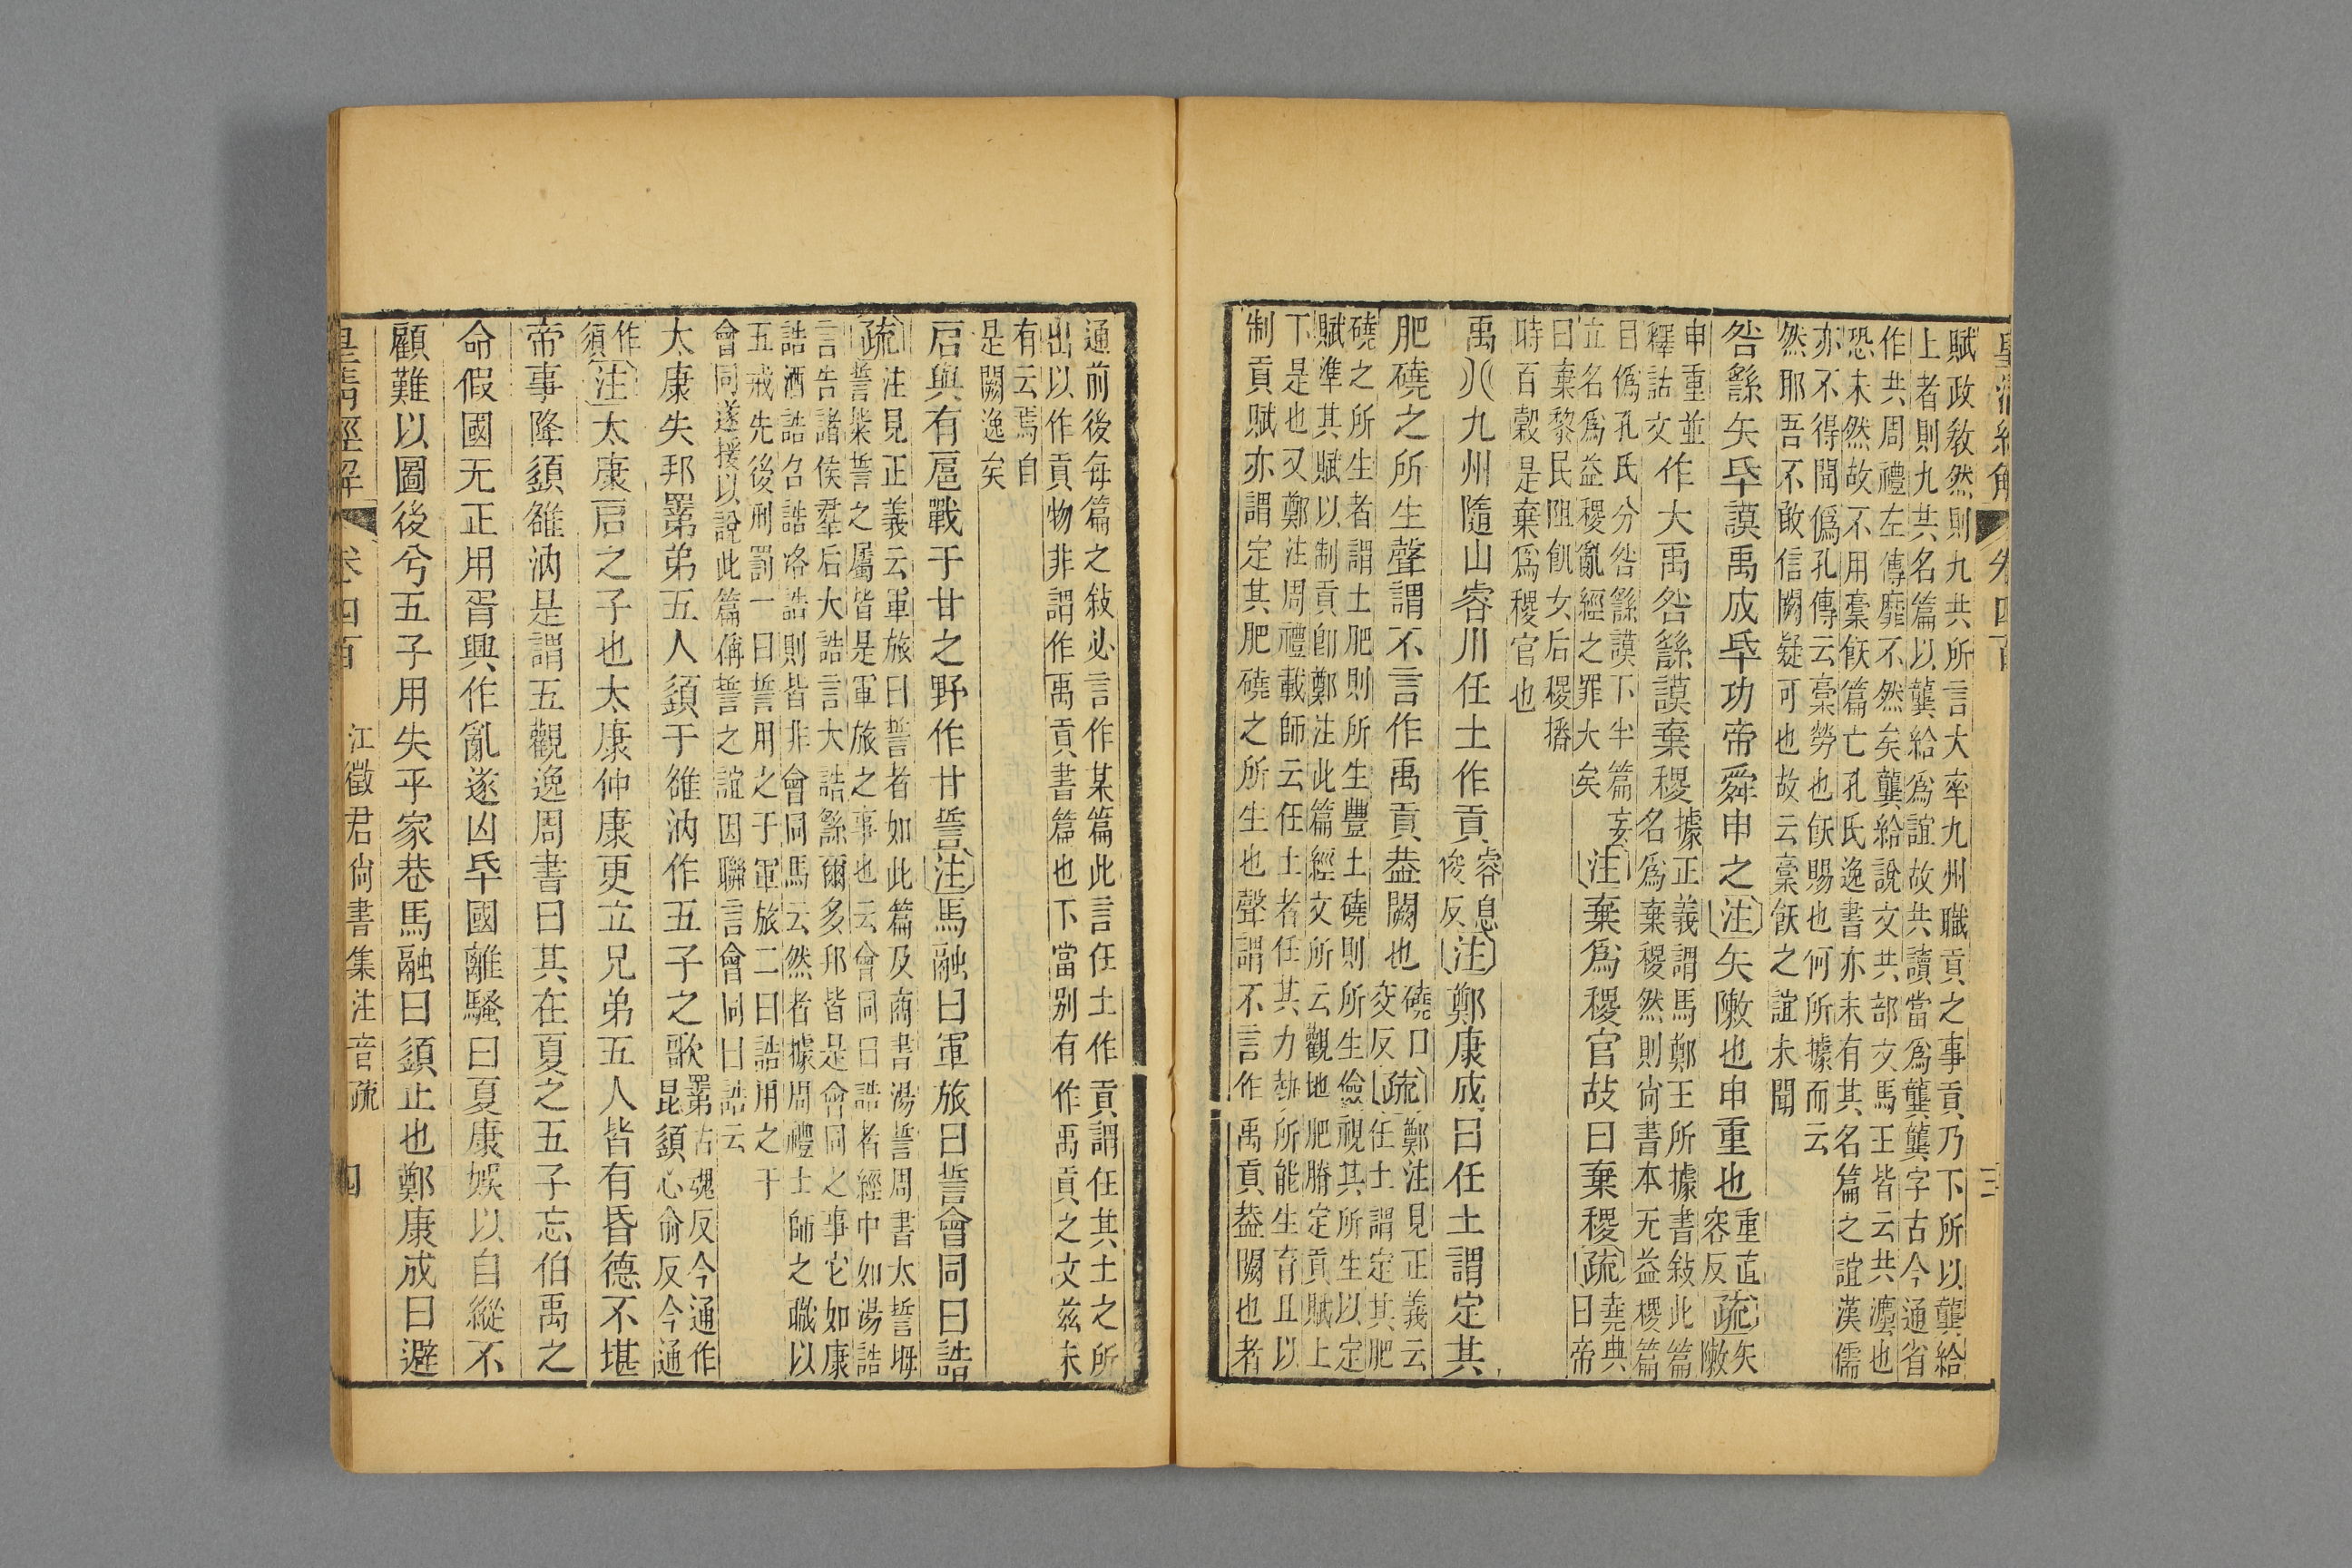 皇清經解 卷四百 三
賦政敎然則九共所言大率九州職貢之事貢乃下所以龔給
上者則九共名篇以龔給爲誼故共讀當爲龔龔字古今通省
作共周禮左傳靡不然矣龔給說文共部文馬王皆云共灋也
恐未然故不用槀飫篇亡孔氏逸書亦未有其名篇之誼漢儒
亦不得聞僞孔傳云槀勞也飫賜也何所據而云
然那吾不敢信闕疑可也故云槀飫之誼未聞
咎繇矢𠂹謨禹成𠂹功帝舜申之〔注〕矢敶也申重也
重直
容反
〔疏〕
矢
敶
申重並
釋詁文
作大禹咎繇謨棄稷
據正義謂馬鄭王所據書敍此篇
名爲棄稷然則尙書本无益稷篇
目僞孔氏分咎繇謨下半篇妄
立名爲益稷亂經之罪大矣
〔注〕棄爲稷官故曰棄稷〔疏〕
堯典
曰帝
曰棄黎民阻飢女后稷播
時百穀是棄爲稷官也
禹𠔁九州隨山睿川任土作貢
睿息
俊反
〔注〕鄭康成曰任土謂定其
肥磽之所生聲謂不言作禹貢葢闕也
磽口
交反
〔疏〕
鄭注見正義云
任土謂定其肥
磽之所生者謂土肥則所生豐土磽則所生儉視其所生以定
賦準其賦以制貢卽鄭注此篇經文所云觀地肥膌定貢賦上
下是也又鄭注周禮載師云任土者任其力埶所能生育且以
制貢賦亦謂定其肥磽之所生也聲謂不言作禹貢葢闕也者
通前後每篇之敍必言作某篇此言任土作貢謂任其土之所
出以作貢物非謂作禹貢書篇也下當別有作禹貢之文兹未
有云焉自
是闕逸矣
启與有扈戰于甘之野作甘誓〔注〕馬融曰軍旅曰誓會同曰誥
〔疏〕
注見正義云軍旅曰誓者如此篇及商書湯誓周書太誓坶
誓柴誓之屬皆是軍旅之事也云會同曰誥者經中如湯誥
言告諸侯羣后大誥言大誥繇爾多邦皆是會同之事它如康
誥酒誥召誥洛誥則皆非會同馬云然者據周禮士師之職以
五戒先後刑罰一曰誓用之于軍旅二曰誥用之于
會同遂援以說此篇偁誓之誼因聯言會同曰誥云
太康失邦𦋺弟五人頾于雒汭作五子之歌
𦋺古魂反今通作
昆頾心俞反今通
作
須
〔注〕太康启之子也太康仲康更立兄弟五人皆有昏德不堪
帝事降頾雒汭是謂五觀逸周書曰其在夏之五子忘伯禹之
命假國无正用胥興作亂遂凶𠂹國離騷曰夏康娛以自縱不
顧難以圖後兮五子用失乎家巷馬融曰頾止也鄭康成曰避
皇清經解 卷四百 江徵君尙書集注音疏 四